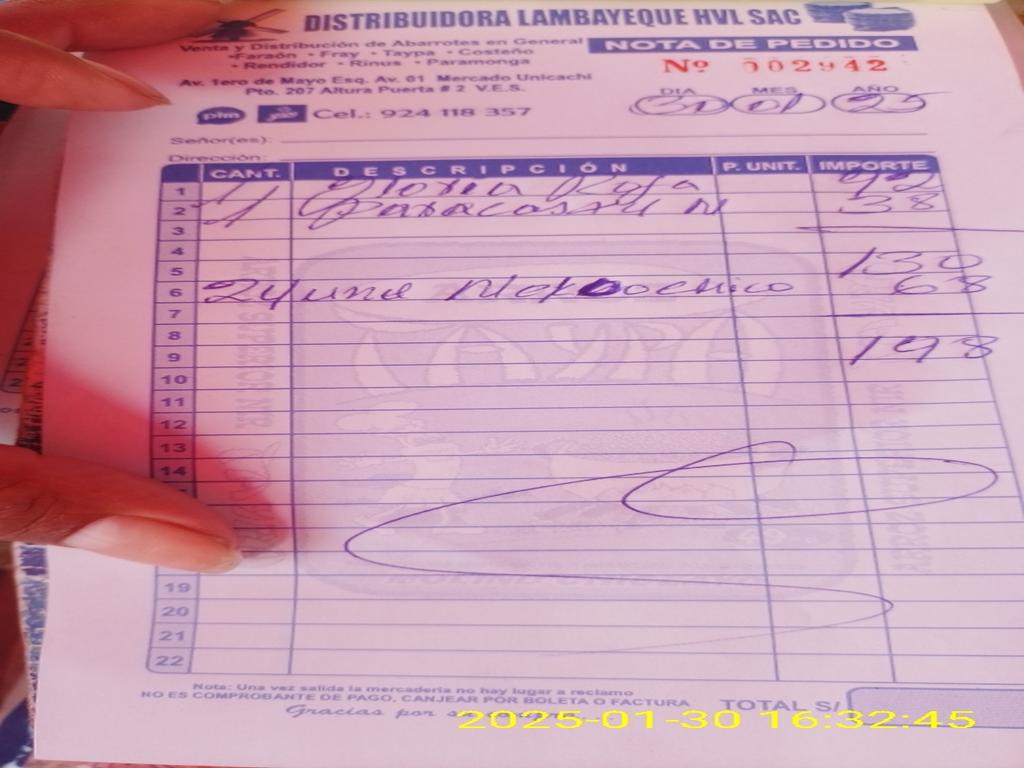 DISTRIBUIDORA LAMBAYEQUE HVL SAC
Venta y Distribución de Abarrotes en General
•Faraón • Fray • Taypa • Costeño
• Rendidor • Rinus • Paramonga
Av. 1ero de Mayo Esq. Av. 01 Mercado Unicachi
Pto. 207 Altura Puerta # 2 V.E.S.
plin Cel.: 924 118 357
NOTA DE PEDIDO
Nº 002942
DIA MES AÑO
01 25
Señor(es):
Dirección:
CANT. DESCRIPCIÓN P. UNIT. IMPORTE
1 1 Gloria Roja 92
2 1 38
3
4
5 130
6 24 une 68
7
8
9 198
10
11
12
13
14
19
20
21
22
Nota: Una vez salida la mercadería no hay lugar a reclamo
NO ES COMPROBANTE DE PAGO, CANJEAR POR BOLETA O FACTURA
Gracias por
TOTAL S/
2025-01-30 16:32:45